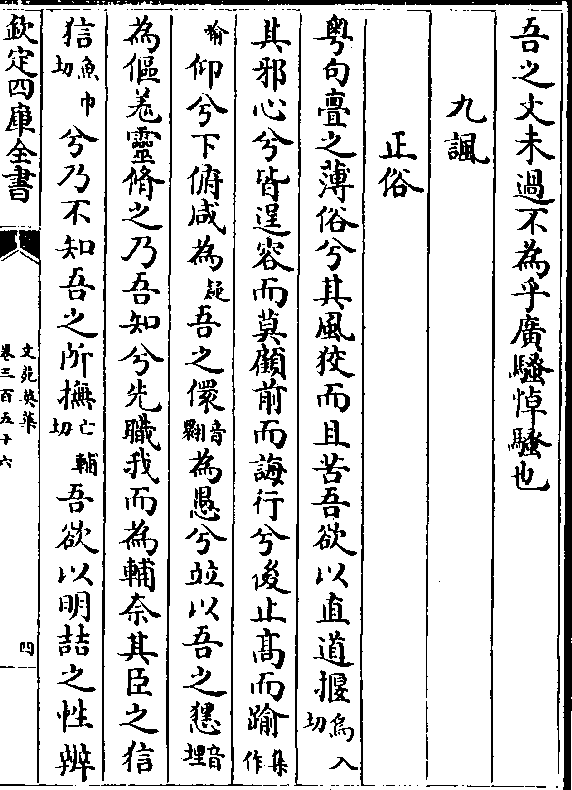 吾之文未過不為乎廣騷悼騷也
九諷
正俗
粤句亶之薄俗兮其風狡而且苦吾欲以直道揠烏入切
其邪心兮皆逞容而莫顧前而誨行兮後止高而踰集作
喻仰兮下俯咸為疑吾之儇音翾為愚兮竝以吾之㥳音埋
為傴羌靈脩之乃吾知兮先職我而為輔奈其臣之信
信魚巾切兮乃不知吾之所撫亡輔切吾欲以明喆之性辨
欽定四庫全書
文苑英華
卷三百五十六
四